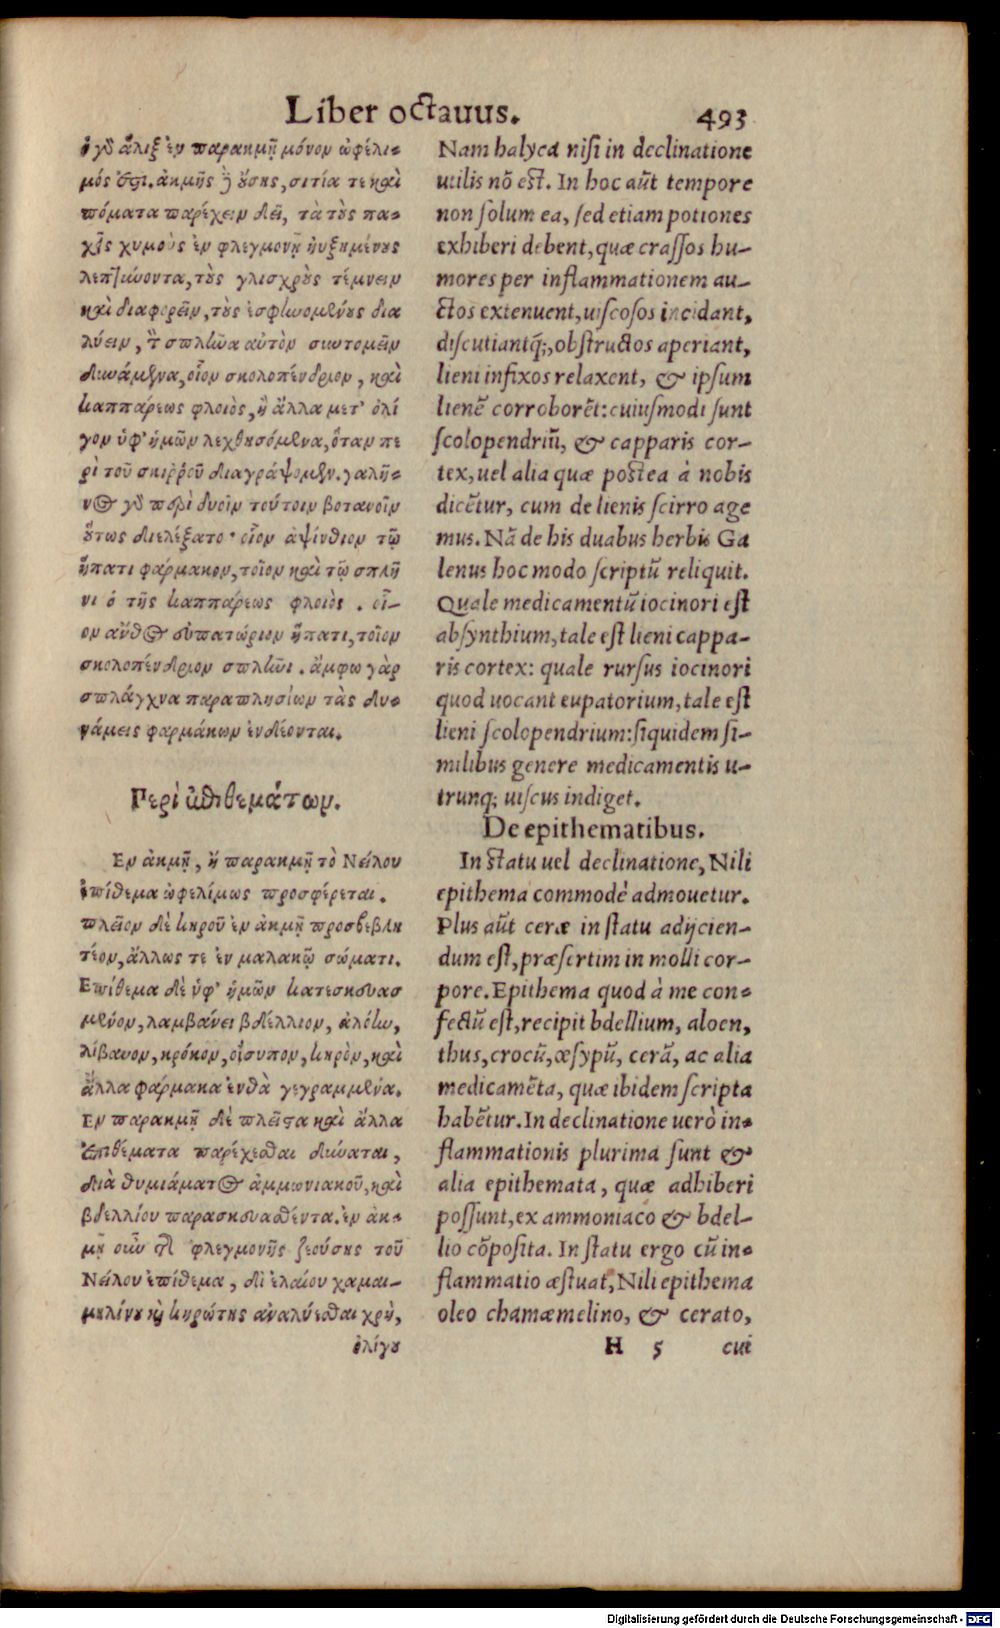 Liber octauus. 493
ὁ γὸ ἅλιξ ἐν παρακμῇ μόνον ὠφέλι-
μός ἐστι. ἀκμῆς ἢ οὔσης, σιτία τε καὶ
πόματα παρέχειν δεῖ, τὰ τοὺς πα-
χεῖς χυμοὺς ἐν φλεγμονῇ ηὐξημένους
λεπτύνοντα, τοὺς γλισχροὺς τέμνειν
καὶ διαφορεῖν, τοὺς ἐσφηνομένους δια
λύειν, ἢ σπλῆνα αὐτὸν συντομεῖν
δυνάμενα, οἷον σκολοπένδριον, καὶ
καππάρεως φλοιὸς, ἢ ἄλλα μετ' ὀλί
γον ὑφ' ἡμῶν λεχθησόμενα, ὅταν πε
ρὶ τοῦ σκιρροῦ διαγράψομεν. γαλη-
νὸς γὸ περὶ δυοῖν τούτοιν βοτανοῖν
οὕτως διελέξατο· οἷον ἀψίνθιον τῷ
ἥπατι φάρμακον, τοῖον καὶ τῷ σπλη
νι ὁ τῆς καππάρεως φλοιός. οἷ-
ον αὖθος εὐπατώριον ἥπατι, τοῖον
σκολοπένδριον σπληνι. ἄμφω γὰρ
σπλάγχνα παραπλησίων τὰς δυ-
νάμεις φαρμάκων ἐνδέονται.
Περὶ ἐπιθεμάτων.
Εν ἀκμῇ, ἢ παρακμῇ τὸ Νείλου
ἐπίθεμα ὠφελίμως προσφέρεται.
πλεῖον δὲ κηροῦ ἐν ἀκμῇ προσβεβλη
τέον, ἄλλως τε ἐν μαλακῷ σώματι.
Επίθεμα δὲ ὑφ' ἡμῶν κατεσκευασ
μένον, λαμβάνει βδέλλιον, ἀλόην,
λίβανον, κρόκον, οἴσυπον, κηρὸν, καὶ
ἄλλα φάρμακα ἐνθὰ γεγραμμένα.
Εν παρακμῇ δὲ πλεῖστα καὶ ἄλλα
ἐπιθέματα παρέχεσθαι δύναται,
διὰ θυμιάματος ἀμμωνιακοῦ, καὶ
βδελλίου παρασκευασθέντα. ἐν ἀκ-
μῇ οὖν τῆς φλεγμονῆς ζεούσης τοῦ
Νείλου ἐπίθεμα, δι' ἐλαίου χαμαι-
μηλίνου καὶ κηρώτης ἀναλύεσθαι χρὴ,
ὀλίγου
Nam halyca nisi in declinatione
utilis nō est. In hoc aūt tempore
non solum ea, sed etiam potiones
exhiberi debent, quæ crassos hu-
mores per inflammationem au-
ctos extenuent, uiscosos incidant,
discutiantq;, obstructos aperiant,
lieni infixos relaxent, & ipsum
lienē corroborēt: cuiusmodi sunt
scolopendriū, & capparis cor-
tex, uel alia quæ postea à nobis
dicētur, cum de lienis scirro age
mus. Nā de his duabus herbis Ga
lenus hoc modo scriptū reliquit.
Quale medicamentū iocinori est
absynthium, tale est lieni cappa-
ris cortex: quale rursus iocinori
quod uocant eupatorium, tale est
lieni scolopendrium: siquidem si-
milibus genere medicamentis u-
trunq; uiscus indiget.
De epithematibus.
In statu uel declinatione, Nili
epithema commodè admouetur.
Plus aūt ceræ in statu adijcien-
dum est, præsertim in molli cor-
pore. Epithema quod à me con-
fectū est, recipit bdellium, aloen,
thus, crocū, œsypū, cerā, ac alia
medicamēta, quæ ibidem scripta
habētur. In declinatione uerò in-
flammationis plurima sunt &
alia epithemata, quæ adhiberi
possunt, ex ammoniaco & bdel-
lio cōposita. In statu ergo cū in-
flammatio æstuat, Nili epithema
oleo chamæmelino, & cerato,
H 5 cui
Digitalisierung gefördert durch die Deutsche Forschungsgemeinschaft - DFG